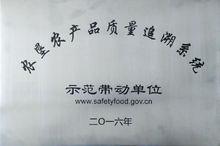 农垦农产品质量追溯系统
示范带动单位
www.safetyfood.gov.cn
二〇一六年